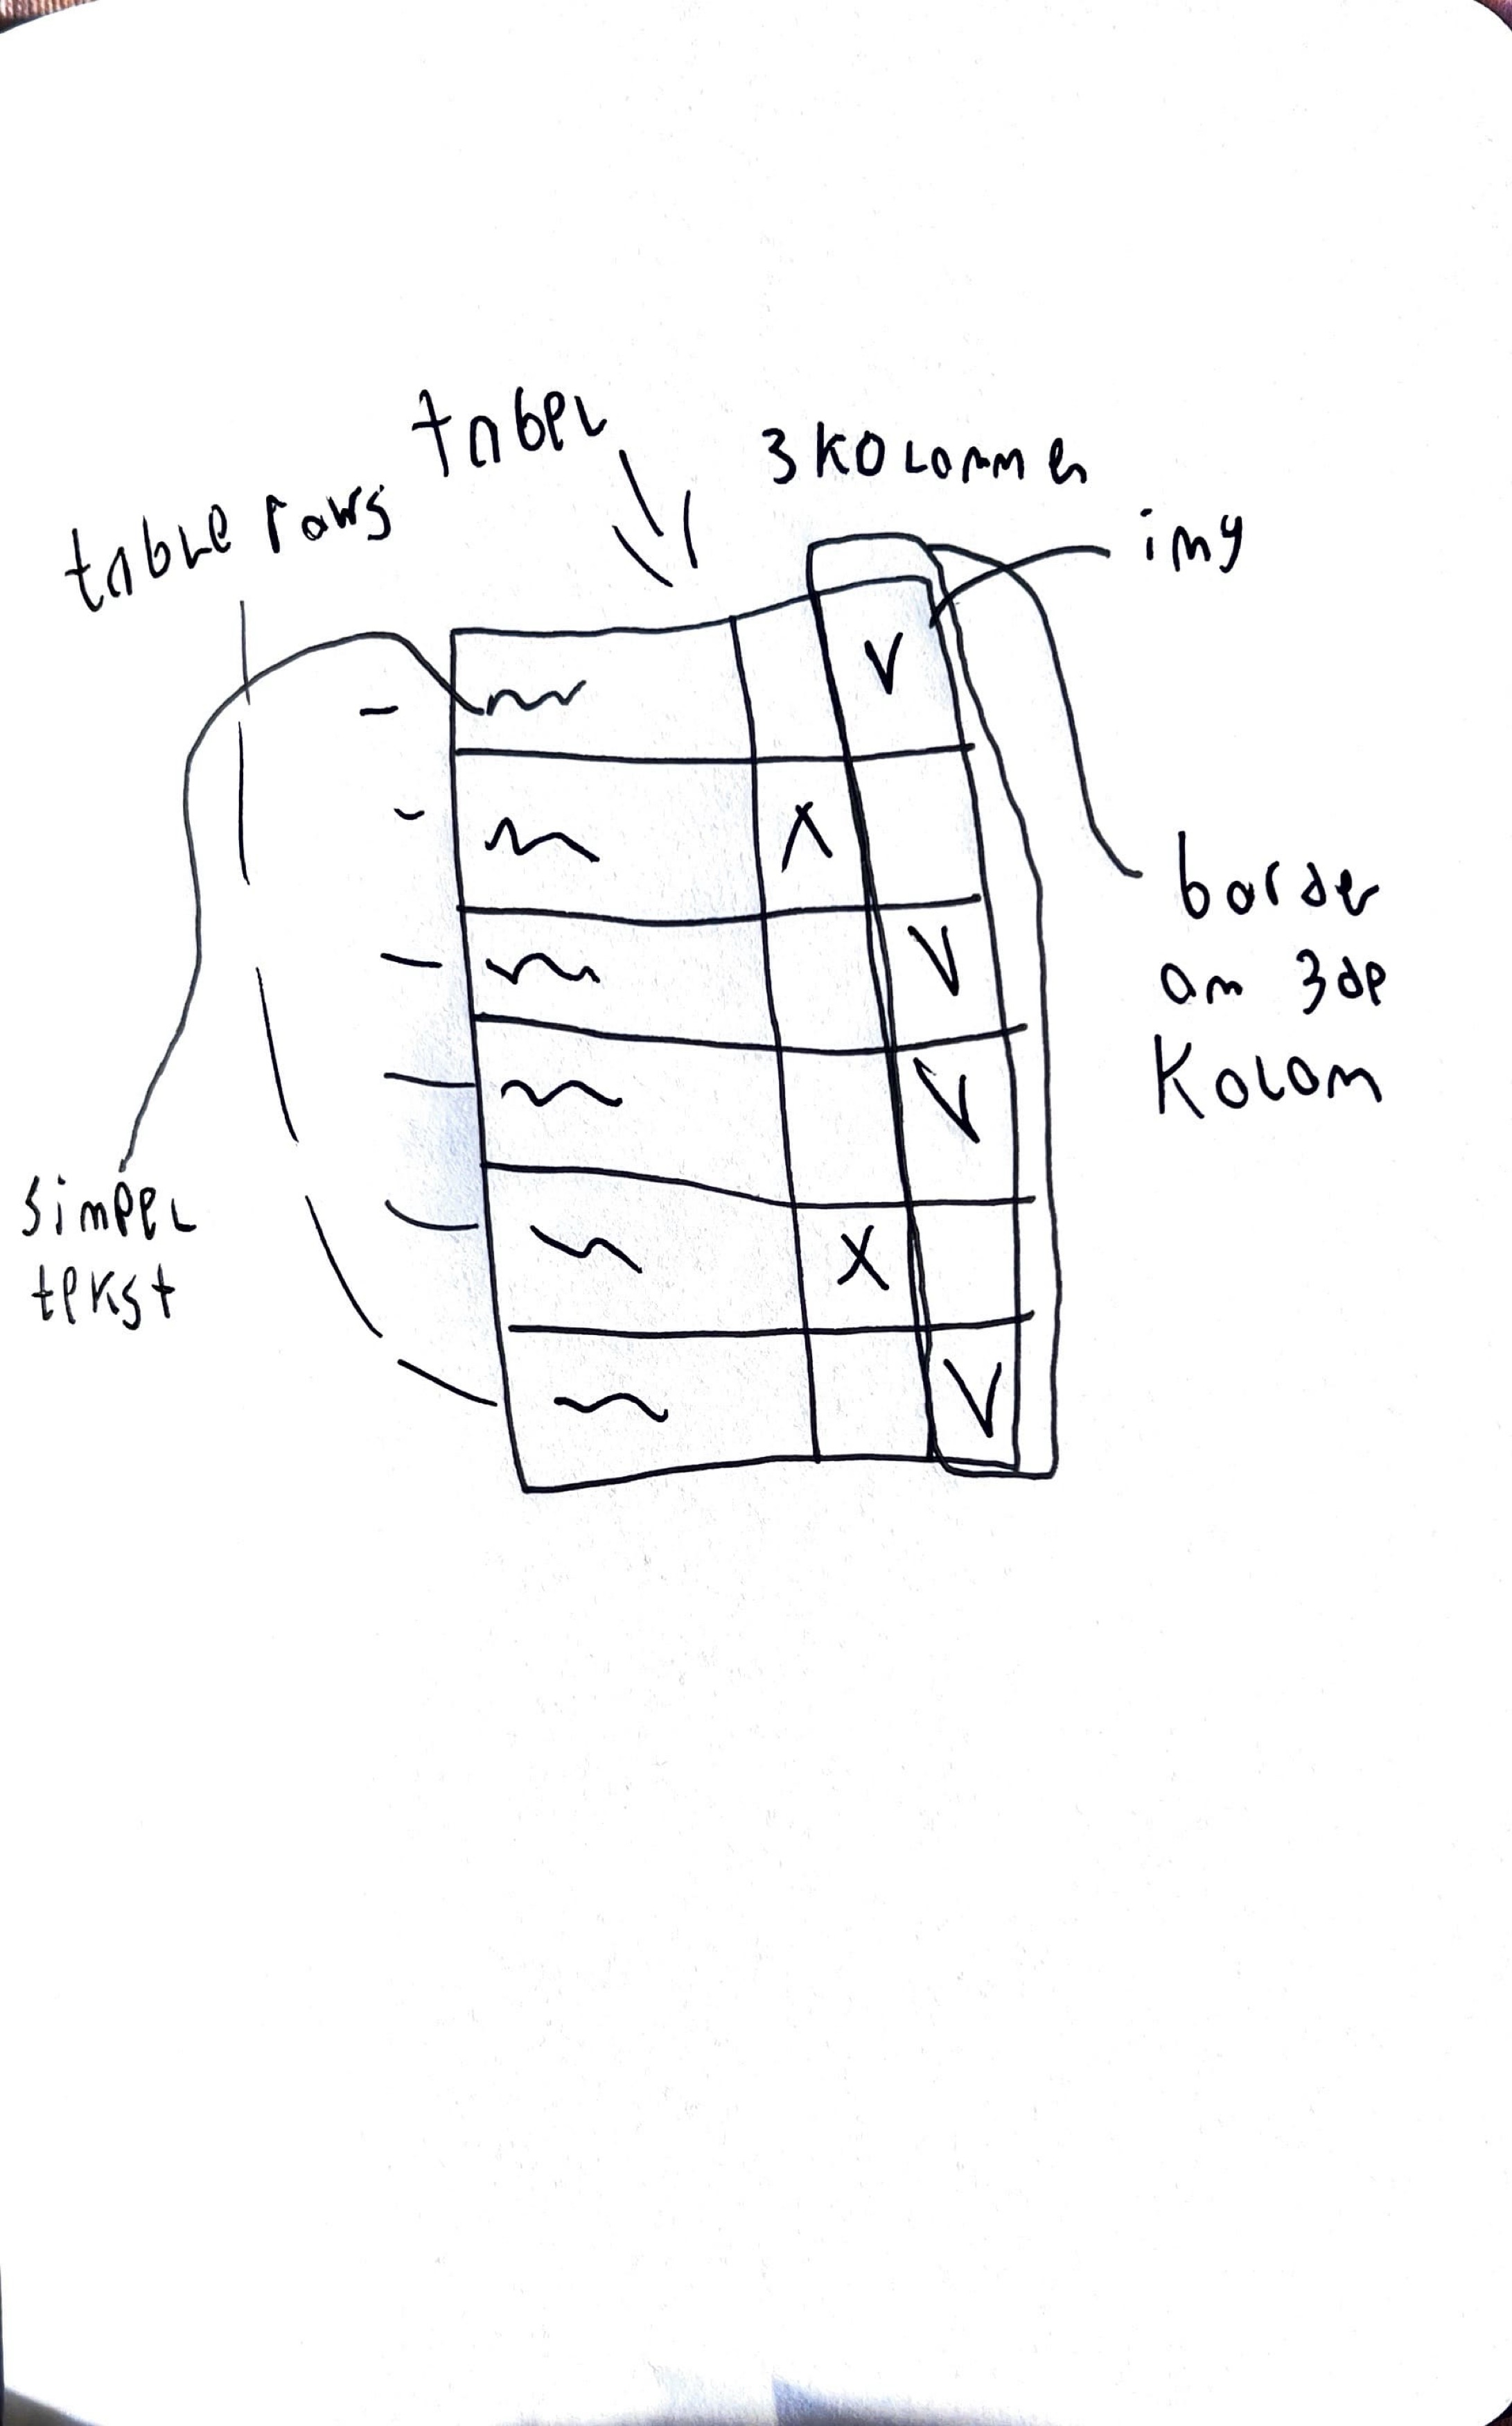 tabel
3 kolommen
table rows
img
V
X
V
border
om 3de
kolom
V
simpel
tekst
X
V